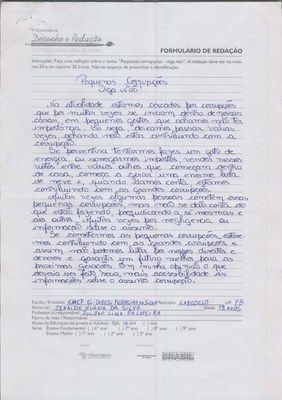 Desenho e Redação
FORMULÁRIO DE REDAÇÃO
Instruções: Faça uma redação sobre o tema: "Pequenas corrupções – diga não". A redação deve ter no míni-
mo 20 e no máximo 30 linhas. Não se esqueça de preencher a identificação.
Pequenas Corrupções
Diga não!
Na atualidade estamos cercados por corrupções
que por muitas vezes se iniciam dentro de nossas
casas, em pequenos gestos que achamos não ter
importância. Ou seja, deixamos passar várias
vezes, achando não estar contribuindo com a
corrupção.
Se porventura tentarmos fazer um gato de
energia, ou sonegarmos impostos, vendes nesses
outros entre vários outros que começam dentro
de casa, começa a gerar uma enorme bola
de neve e, quando damos conta, estamos
contribuindo com as grandes corrupções.
Muitas vezes algumas pessoas cometem essas
pequenas corrupções, mas não se dão conta do
que estão fazendo, prejudicando a si mesmas e
aos outros, muitas vezes por negligência ou
informação sobre o assunto.
Se cometermos as pequenas corrupções, estare-
mos contribuindo com as grandes corrupções e
assim não podemos lutar por nossos direitos e
deveres e garantir um futuro melhor para as
próximas gerações. Em minha opinião o que
deveria ser feito seria, mais acessibilidade às
informações sobre o assunto corrupção.
Escola / Entidade:
Município: Cabedelo UF: PB
Nome (s): DA SILVA Idade: 19 anos
Professor(a) responsável: LIMA
Nome da mãe / Responsável:
Nome da Educação de Jovens e Adultos - EJA: ( ) sim ( ) não
Série: Ensino Fundamental: ( ) 6º ano ( ) 7º ano ( ) 8º ano ( ) 9º ano
Ensino Médio: ( ) 1º ano ( ) 2º ano ( ) 3º ano
BRASIL